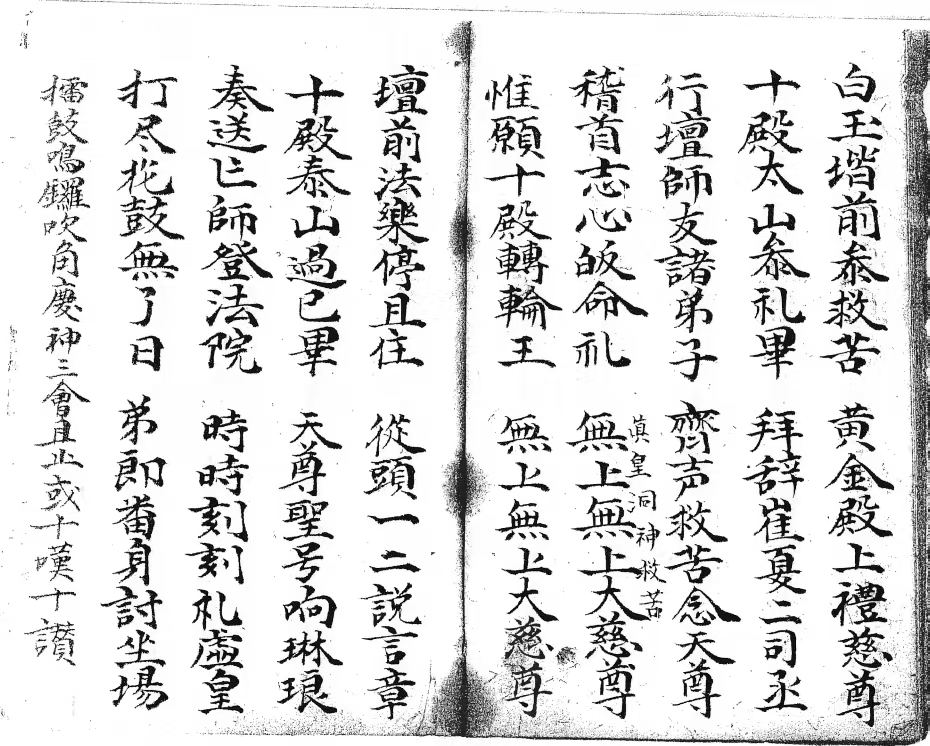 白玉堦前叅救苦　黄金殿上禮慈尊
十殿太山叅礼畢　拜辞崔夏二司丞
行壇師友諸弟子　齊声救苦念天尊
真皇洞神救苦
稽首志心皈命礼　無上無上大慈尊
惟願十殿轉輪王　無上無上大慈尊
壇前法樂停且住　從頭一二説言章
十殿泰山過已畢　天尊聖号响琳琅
奏送亡師登法院　時時刻刻礼虛皇
打尽花鼓無了日　弟郎番身討坐場
擂鼓鳴鑼吹角慶神三會且止或十嘆十讃